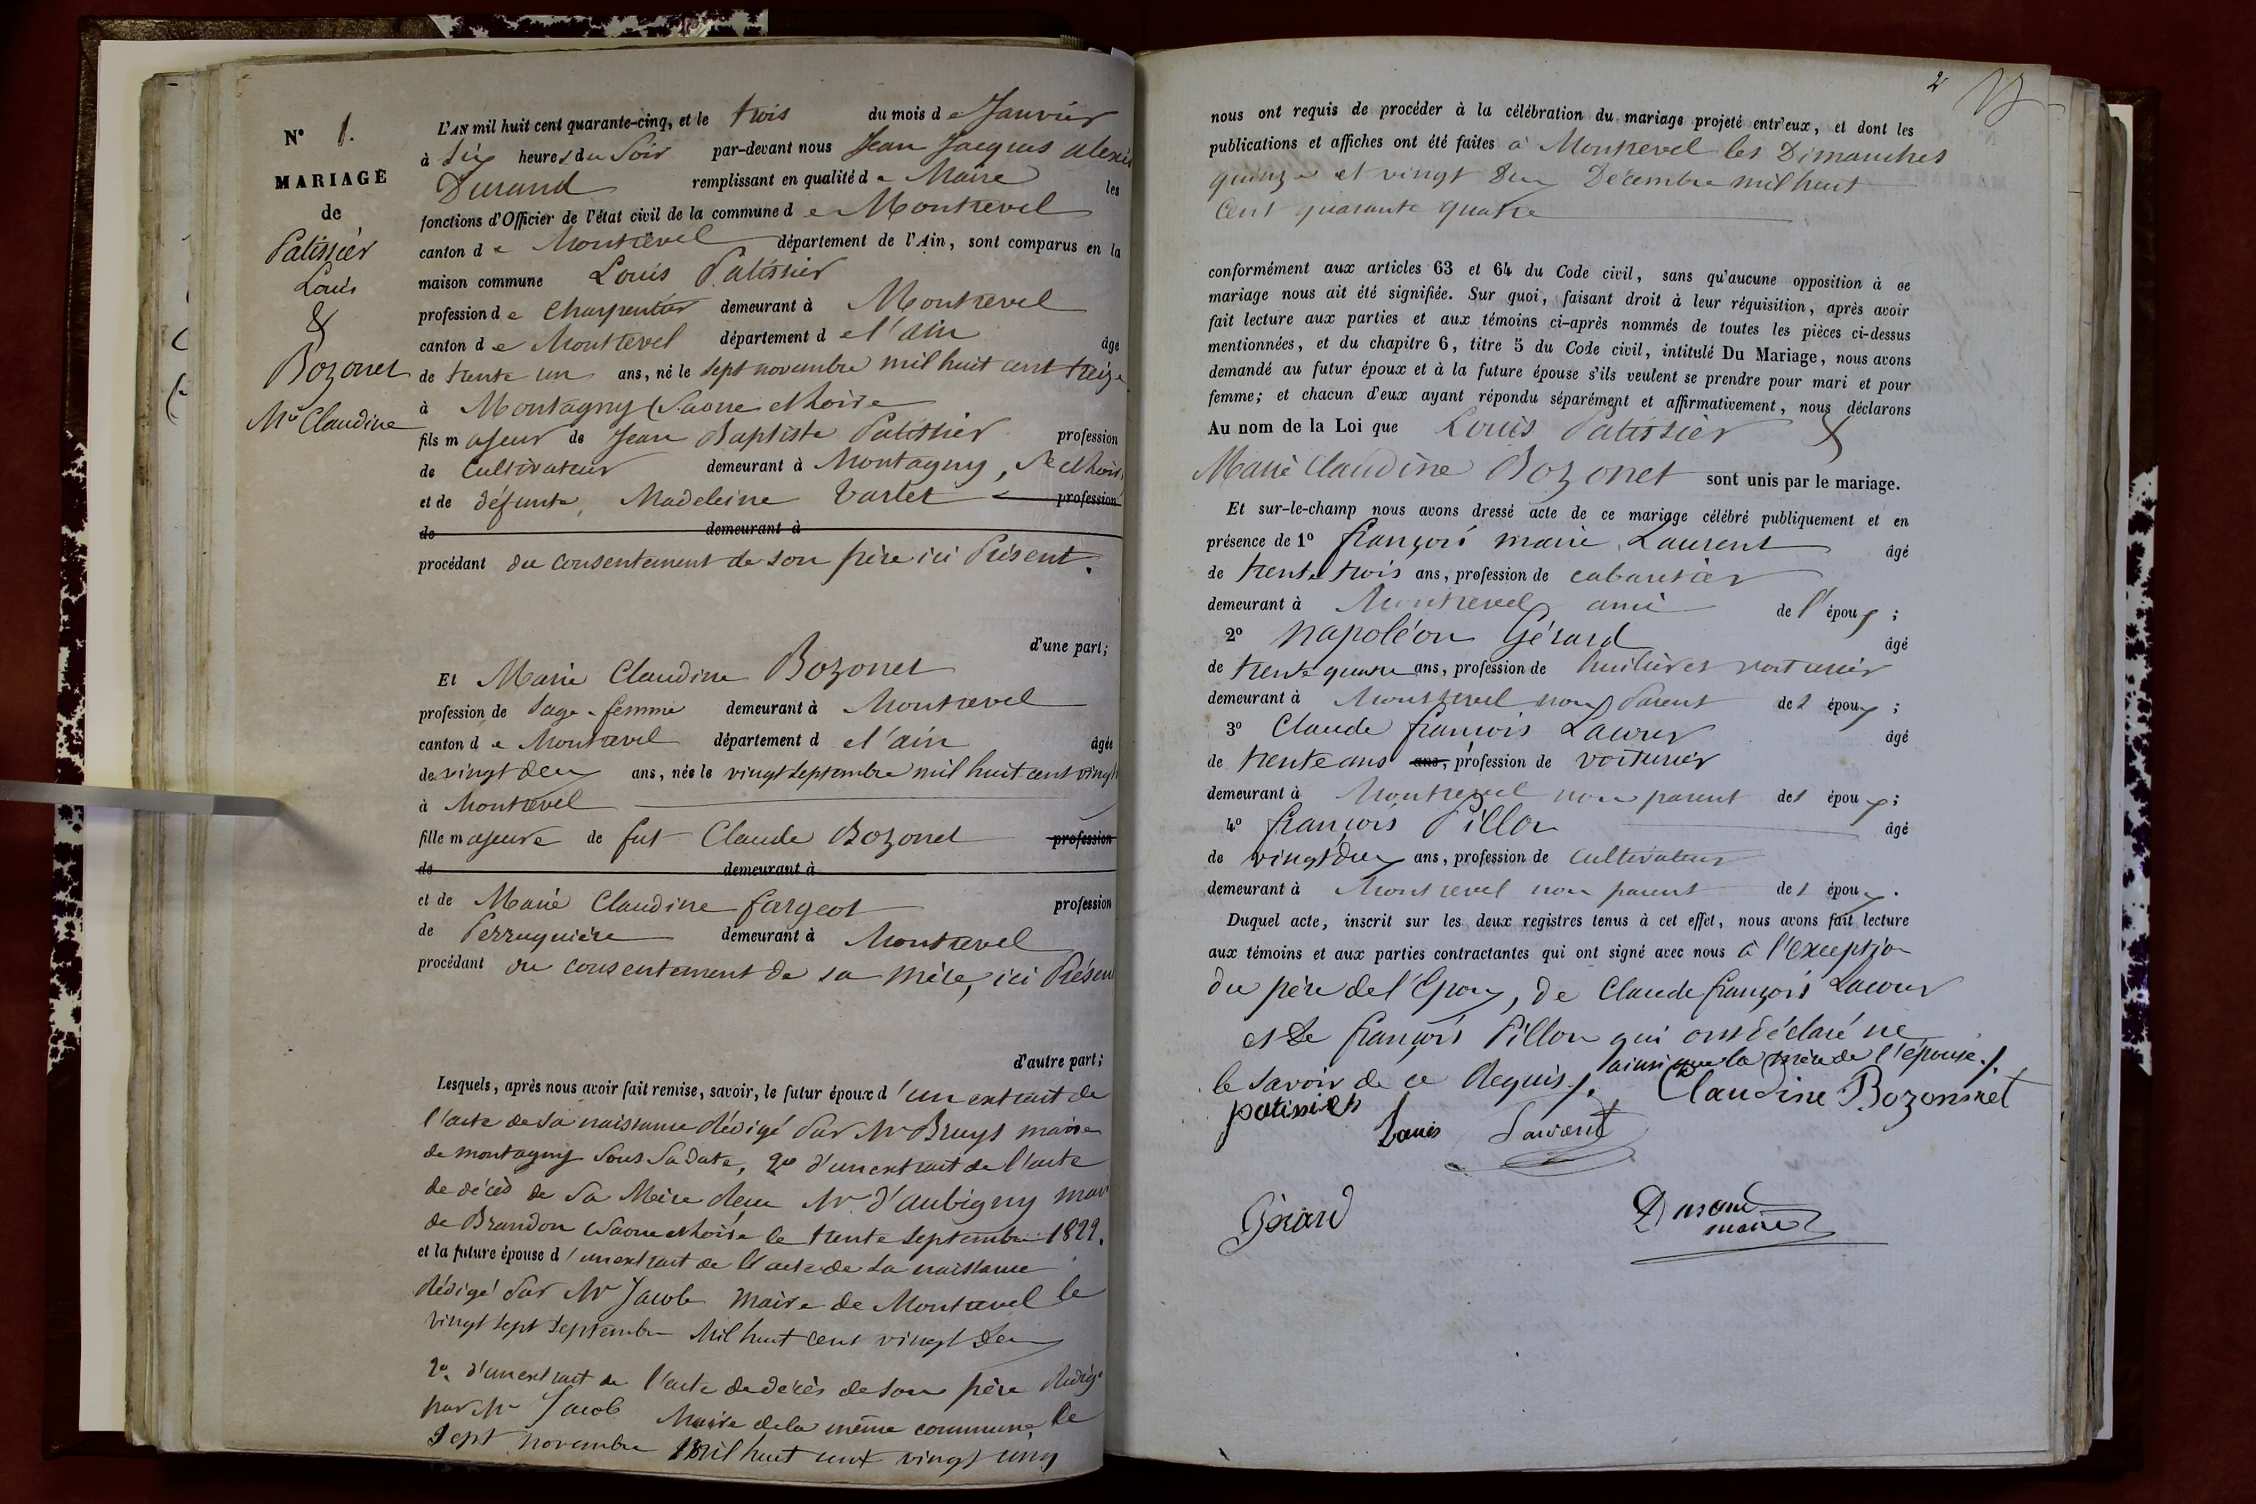 N° 1.
MARIAGE
de
Patissier
Louis
&
Bozonet
Mie Claudine
L'AN mil huit cent quarante-cinq, et le trois du mois de Janvier
à Six heures du Soir par-devant nous Jean Jacques alexis
Durand remplissant en qualité de Maire les
fonctions d'Officier de l'état civil de la commune de Montrevel
canton de Montrevel département de l'Ain, sont comparus en la
maison commune Louis Patissier
profession de Charpentier demeurant à Montrevel
canton de Montrevel département de l'ain âgé
de trente un ans, né le sept novembre mil huit cent treize
à Montagny (Saone et Loire
fils majeur de Jean Baptiste Patissier profession
de Cultivateur demeurant à Montagny, Sne et Loire,
et de défunte, Madeleine Varlet profession
de demeurant à
procédant du consentement de son père ici Présent.
d'une part;
Et Marie Claudine Bozonet
profession de Sage-femme demeurant à Montrevel
canton de Montrevel département de l'ain âgée
de vingt deux ans, née le vingt septembre mil huit cent vingt
à Montrevel
fille majeure de fut Claude Bozonet profession
de demeurant à
et de Marie Claudine fargeot profession
de Perruquière demeurant à Montrevel
procédant du consentement de sa mère, ici Présen
d'autre part;
Lesquels, après nous avoir fait remise, savoir, le futur époux d'un extrait de
l'acte de sa naissance rédigé Par Mr Bruys maire
de montagny sous sa date, 2° d'un extrait de l'acte
de décès de sa Mère Mr. d'aubigny mair
de Brandon (Saone et Loire le trente septembre 1822.
et la future épouse d'un extrait de l'acte de sa naissance
Rédigé Par Mr Jacob maire de Montrevel le
vingt sept septembre Mil huit cent vingt deux
2° d'un extrait de l'acte de décès de son père Rédigé
par Mr Jacob Maire de la même commune, le
Sept novembre Mil huit cent vingt cinq
2
nous ont requis de procéder à la célébration du mariage projeté entr'eux, et dont les
publications et affiches ont été faites à Montrevel les Dimanches
quinze et vingt deux Décembre mil huit
Cent quarante quatre
conformément aux articles 63 et 64 du Code civil, sans qu'aucune opposition à ce
mariage nous ait été signifiée. Sur quoi, faisant droit à leur réquisition, après avoir
fait lecture aux parties et aux témoins ci-après nommés de toutes les pièces ci-dessus
mentionnées, et du chapitre 6, titre 5 du Code civil, intitulé Du Mariage, nous avons
demandé au futur époux et à la future épouse s'ils veulent se prendre pour mari et pour
femme; et chacun d'eux ayant répondu séparément et affirmativement, nous déclarons
Au nom de la Loi que Louis Patissier &
Marie Claudine Bozonet sont unis par le mariage.
Et sur-le-champ nous avons dressé acte de ce mariage célébré publiquement et en
présence de 1° françois marie Laurent âgé
de trente trois ans, profession de cabaretier
demeurant à Montrevel ami de l'époux;
2° Napoléon Gérard âgé
de trente quatre ans, profession de huilier et voiturier
demeurant à Montrevel non Parent de l'époux;
3° Claude françois Lacour âgé
de trente ans ans, profession de voiturier
demeurant à Montrevel non parent de l'époux;
4° françois Pillon âgé
de vingt deux ans, profession de cultivateur
demeurant à Montrevel non parent de l'époux.
Duquel acte, inscrit sur les deux registres tenus à cet effet, nous avons fait lecture
aux témoins et aux parties contractantes qui ont signé avec nous à l'exception
du père de l'Epoux, de Claude françois Lacour
et de françois Pillon qui ont déclaré ne
le Savoir de ce Requis. / ainsi que la mère de l'épouse. /.
patissier Claudine Bozonnet
Louis Laurent
Gérard
Durand
maire